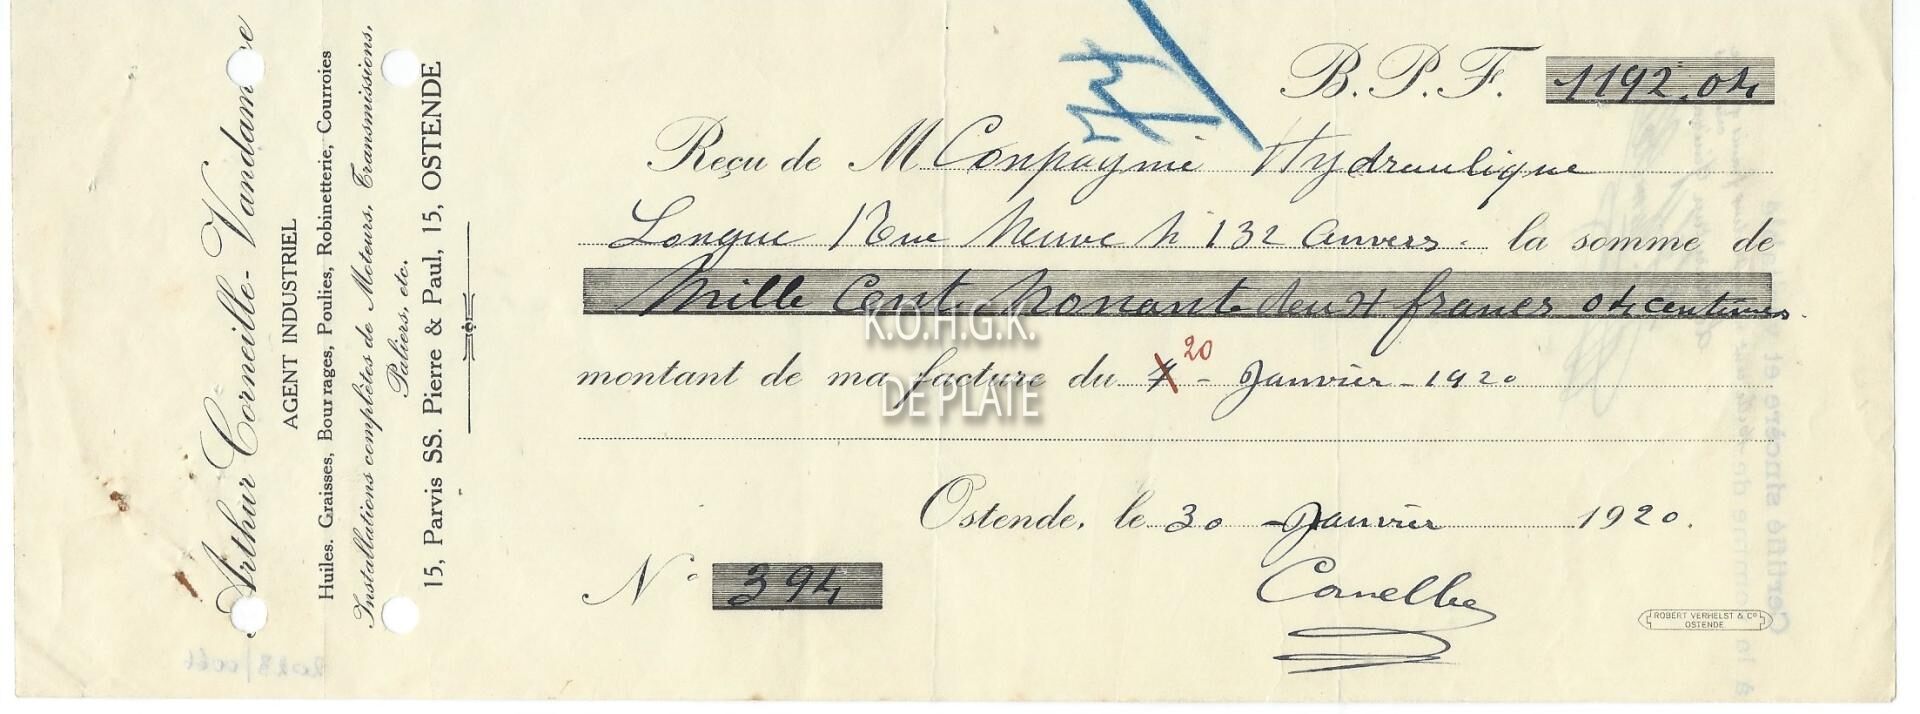 Arthur Corneille-Vandamme
AGENT INDUSTRIEL
Huiles. Graisses, Bourrages, Poulies, Robinetterie, Courroies
Installations complètes de Moteurs, Transmissions,
Paliers, etc.
15, Parvis SS. Pierre & Paul, 15, OSTENDE
B. P. F. 1192.04
Reçu de M Conpaynie Hydraulique
Longue Rue Neuve N 132 Anvers. la somme de
Mille Cent Nonante deux francs 04 centimes
montant de ma facture du 20 - Janvier - 1920
Ostende, le 30 - Janvier 1920.
N° 394
ROBERT VERHELST & Cº
OSTENDE
K.O.H.G.K.
DE PLATE